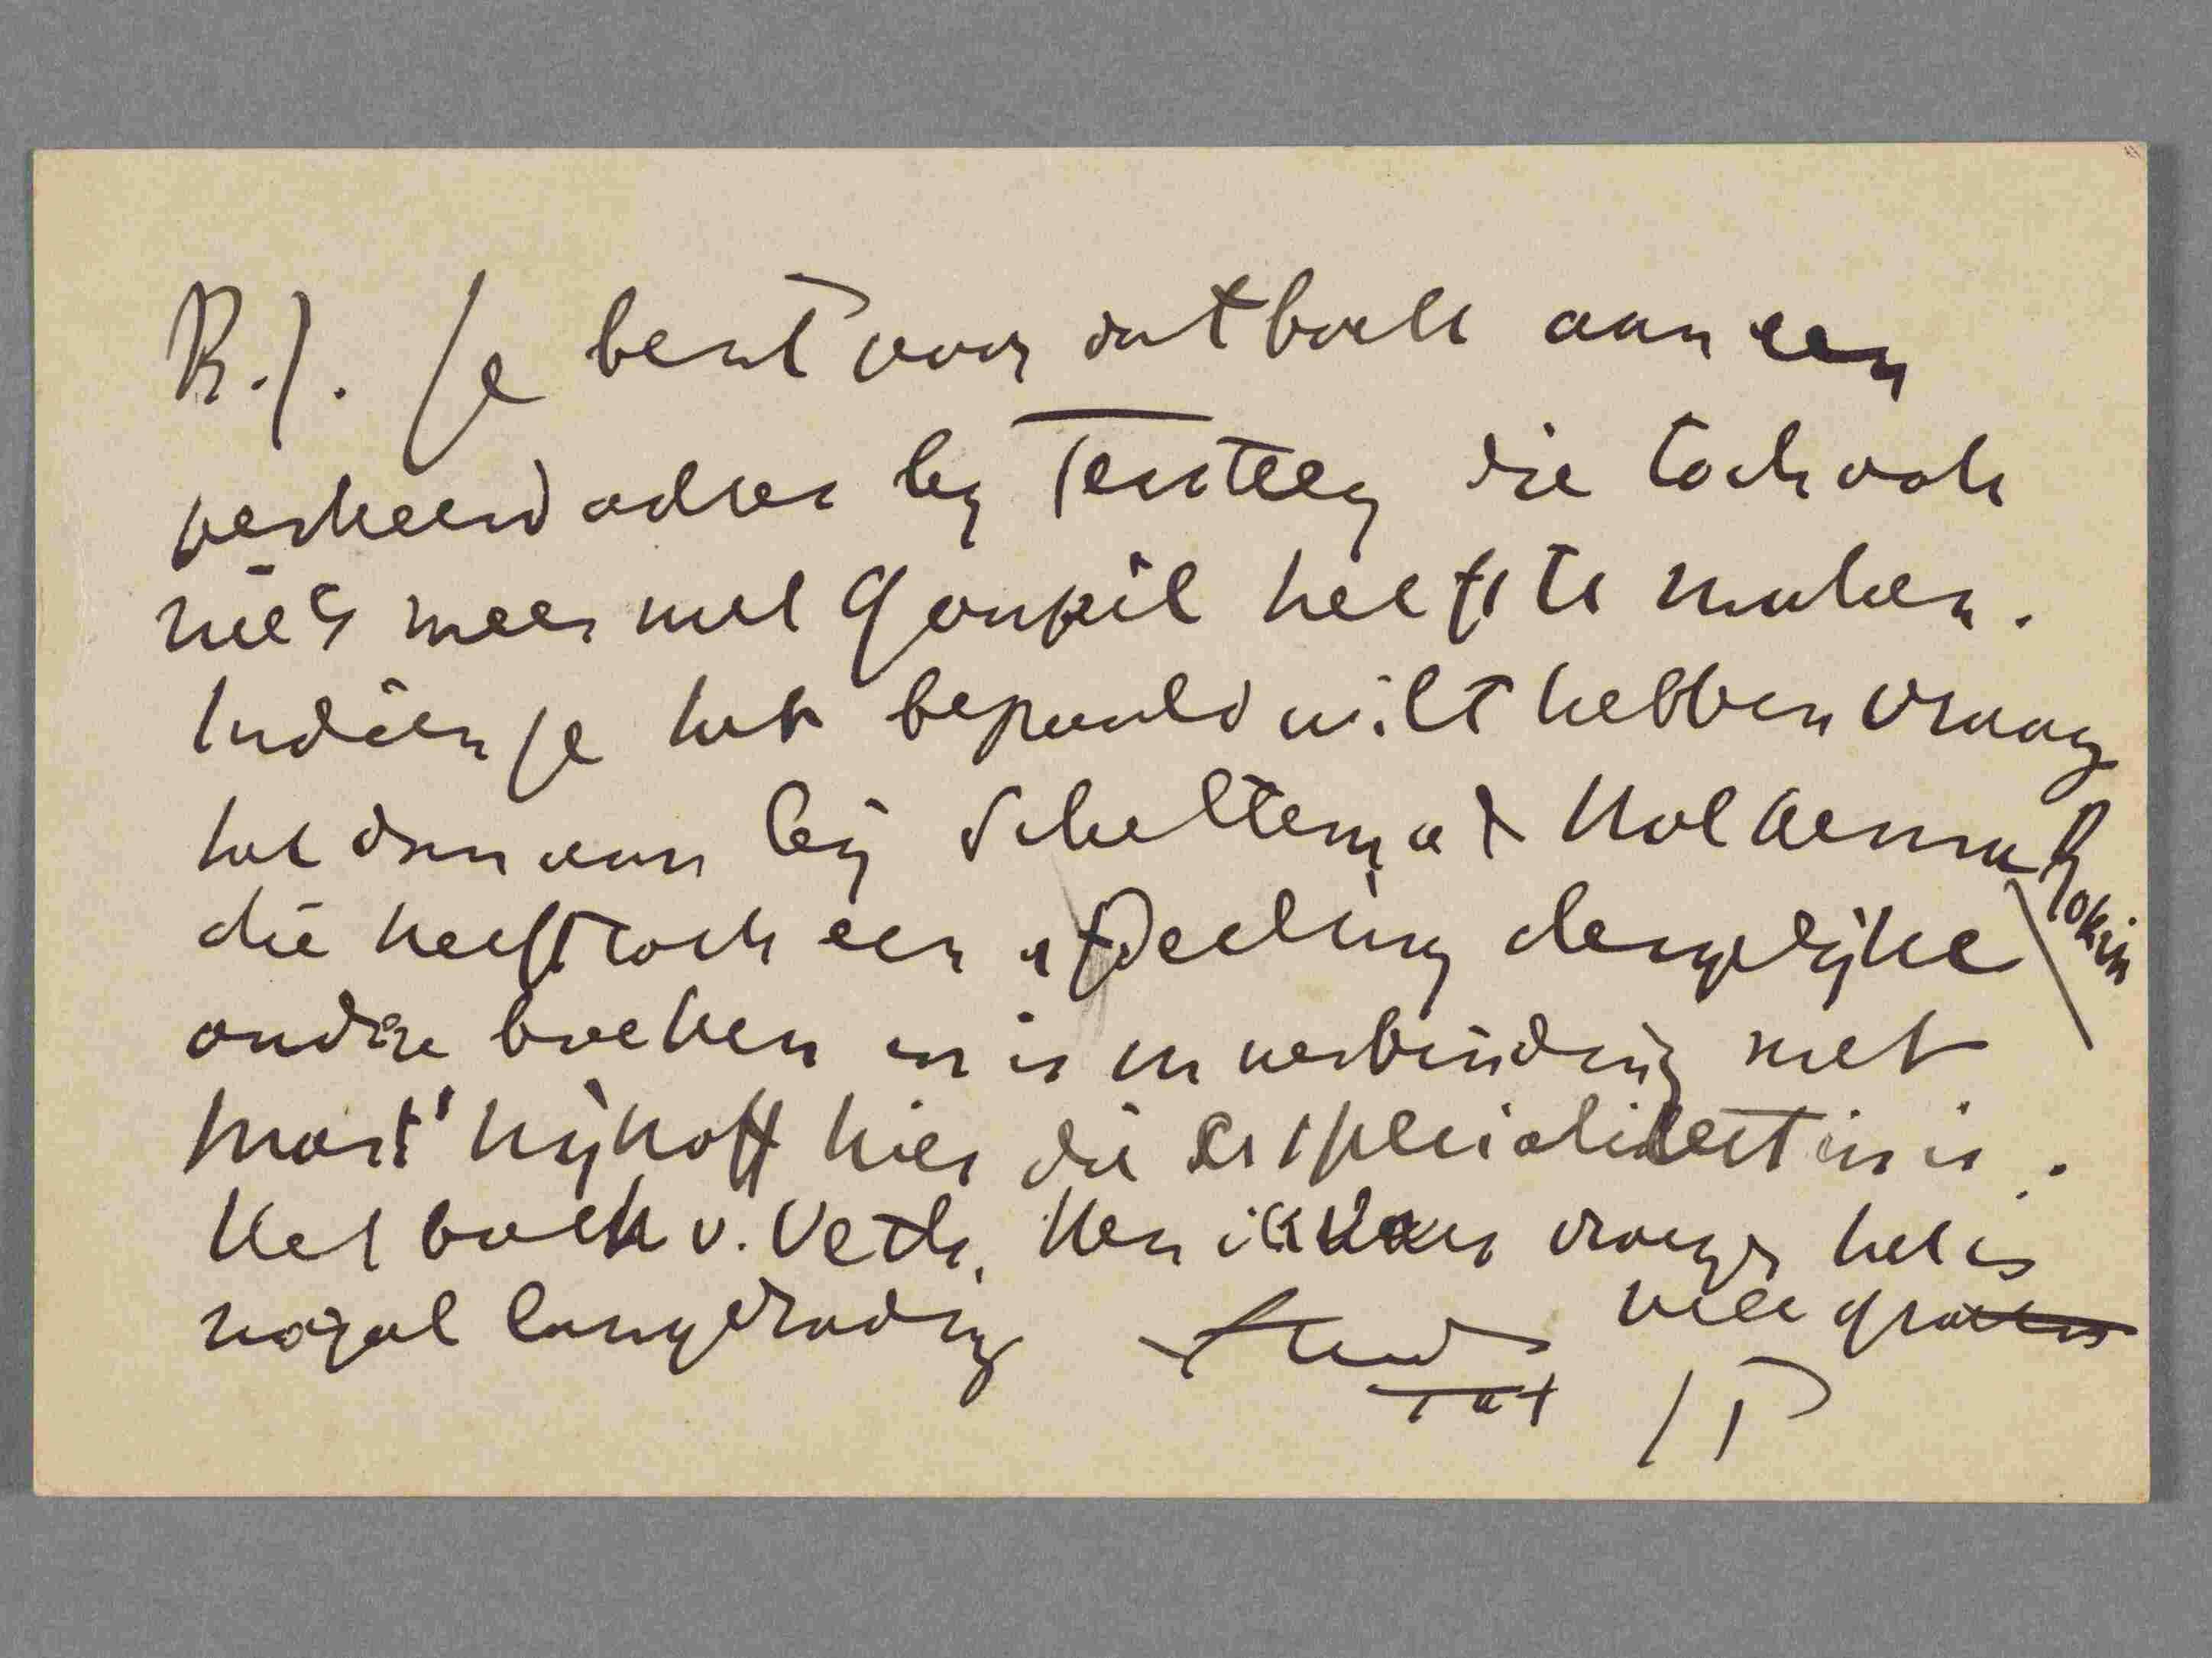 B.J. Je bent voor dat boek aan een
verkeerd adres by Tersteeg die toch ook
niets meer met Goupil heeft te maken.
Indien je het bepaald wilt hebben vraag
het dan aan bij Scheltema & Holkema Rokin
die heeft toch een afdeeling dergelijke
oudere boeken en is in verbinding met
Mart' Nijhoff hier die er specialiteit in is.
Het boek v. Veth. Ken ik vroeger het is
nogal langdradig veele groeten
tat JT